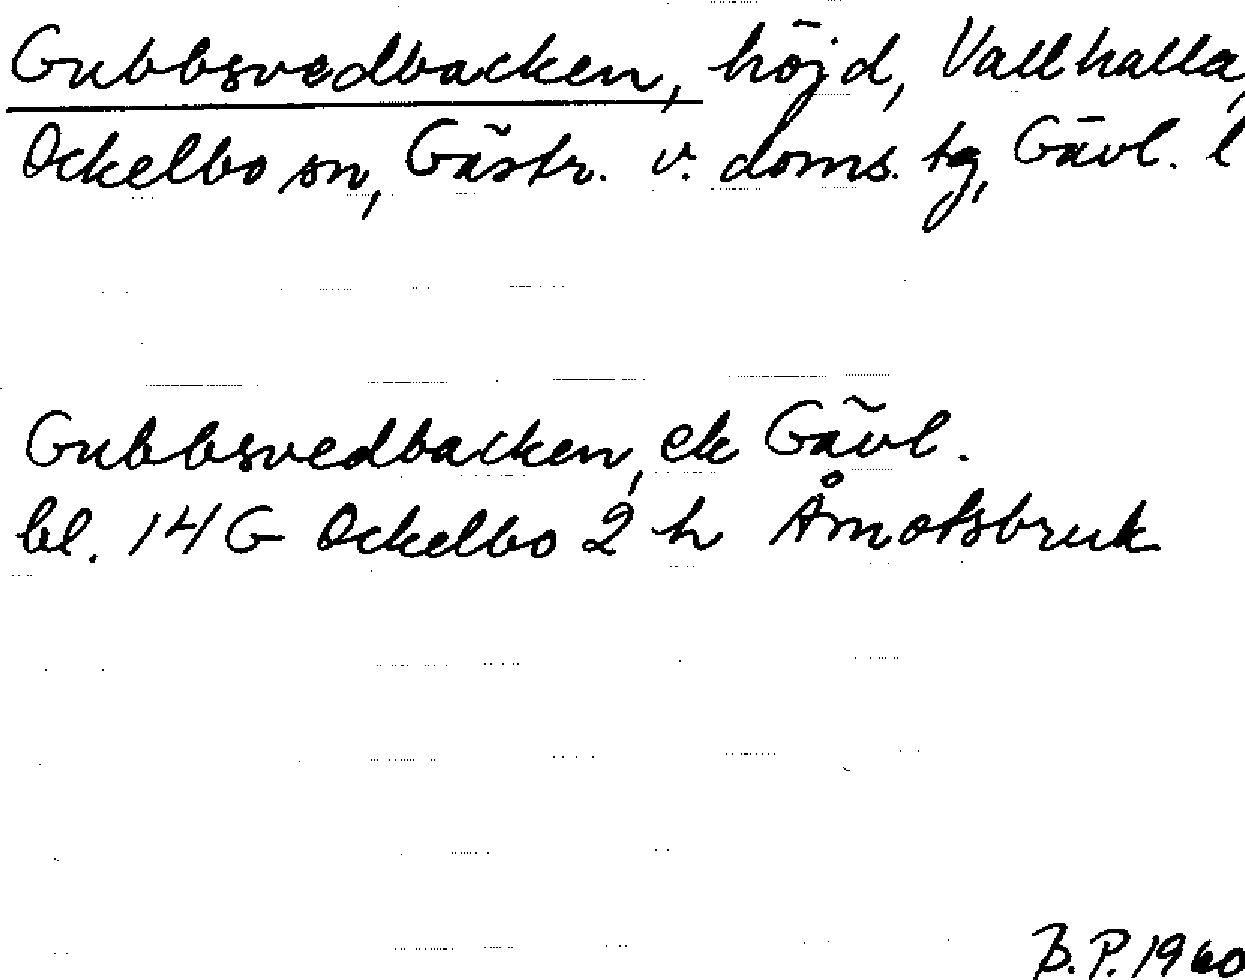 Gubbsvedbacken, höjd, Vallhalla,
Ockelbo sn, Gästr. v. doms. tg, Gävl. l
Gubbsvedbacken, ek Gävl.
bl. 14 G Ockelbo 2 h Åmotsbruk
B. P. 1960